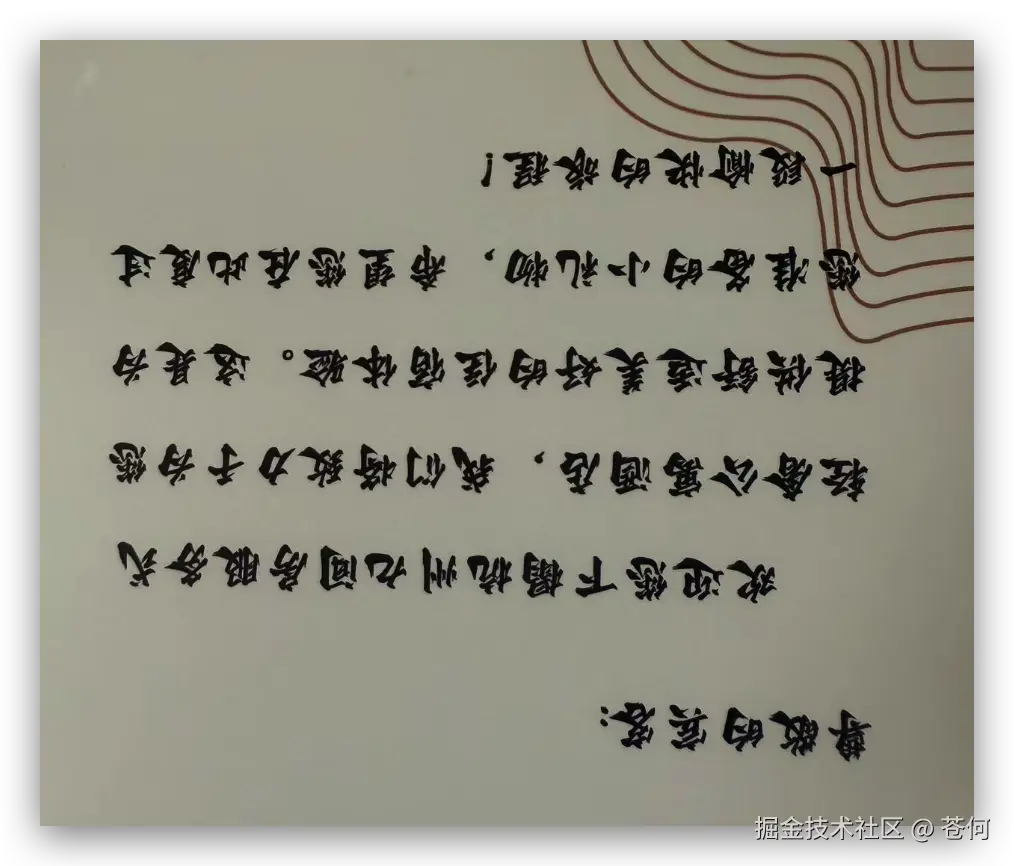 尊敬的宾客：
欢迎您下榻杭州九间房服务式
轻奢公寓酒店，我们将致力于为您
提供舒适美好的住宿体验。这是为
您准备的小礼物，希望您在此度过
一段愉快的旅程！
掘金技术社区 @ 苍何